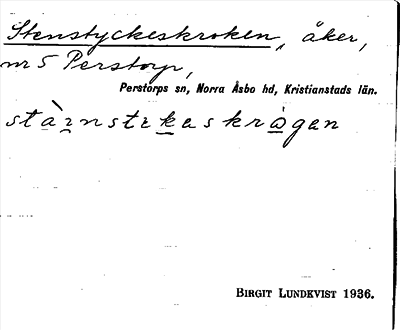 Stenstyckeskroken, åker,
nr 5 Perstorp,
Perstorps sn, Norra Åsbo hd, Kristianstads län.
stàɪ̱nstɪḵaskrå̱gan
BIRGIT LUNDKVIST 1936.